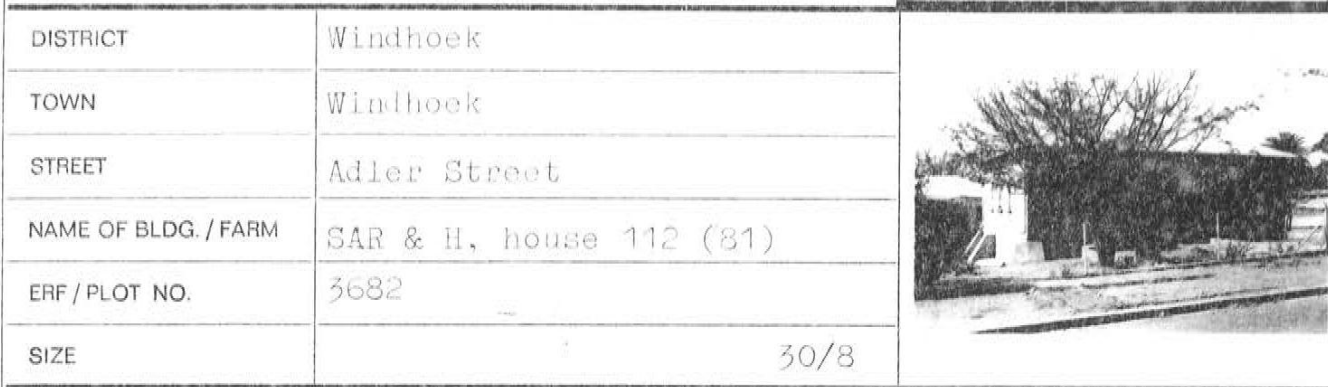 DISTRICT Windhoek
TOWN Windhoek
STREET Adler Street
NAME OF BLDG. / FARM SAR & H, house 112 (81)
ERF / PLOT NO. 3682
SIZE 30/8